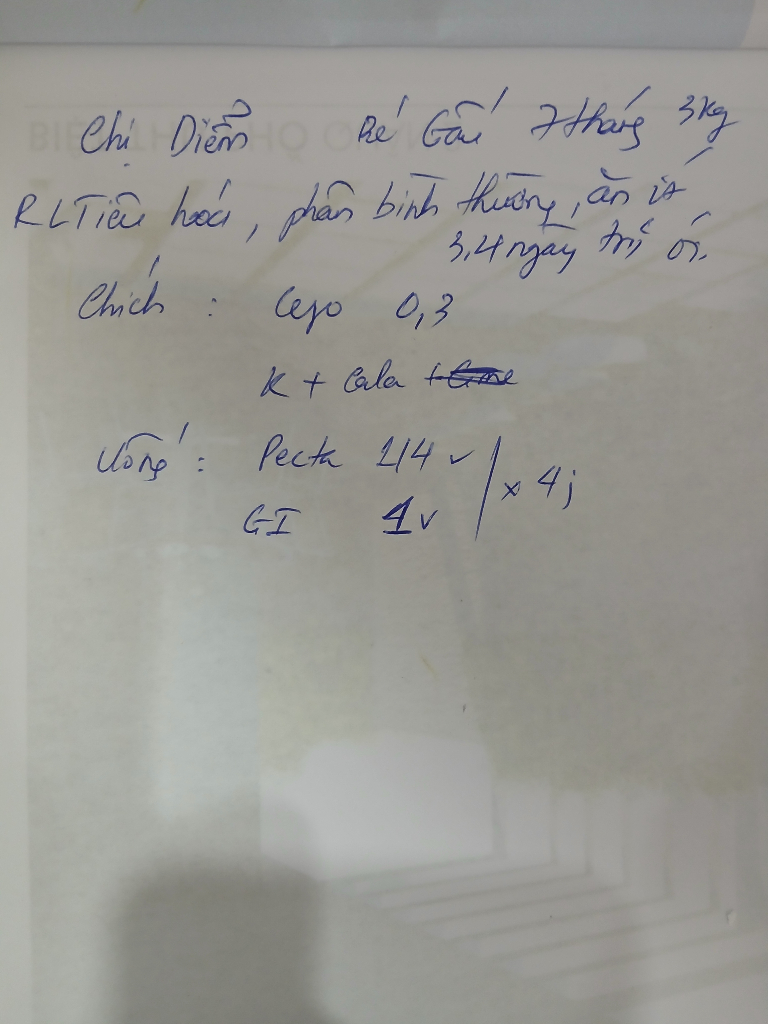 Chị Diễm Bé Gấu 7 tháng 3kg
RL Tiêu hoá, phân bình thường, ăn ít
3,4 ngày trị ói.
Chích : 0,3
K + Cala +
Uống : Pecta 1/4 v
GI 1v x 4j